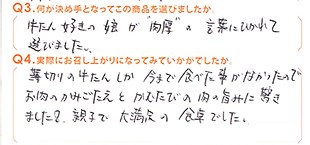 Q3.何が決め手となってこの商品を選びましたか。
牛たん好きの娘が"肉厚"の言葉にひかれて
選びました。
Q4.実際にお召し上がりになってみていかがでしたか。
薄切りの牛たんしか今まで食べた事がなかったので
お肉のかみごたえとかむたびの肉の旨みに驚き
ました。親子で大満足の食卓でした。